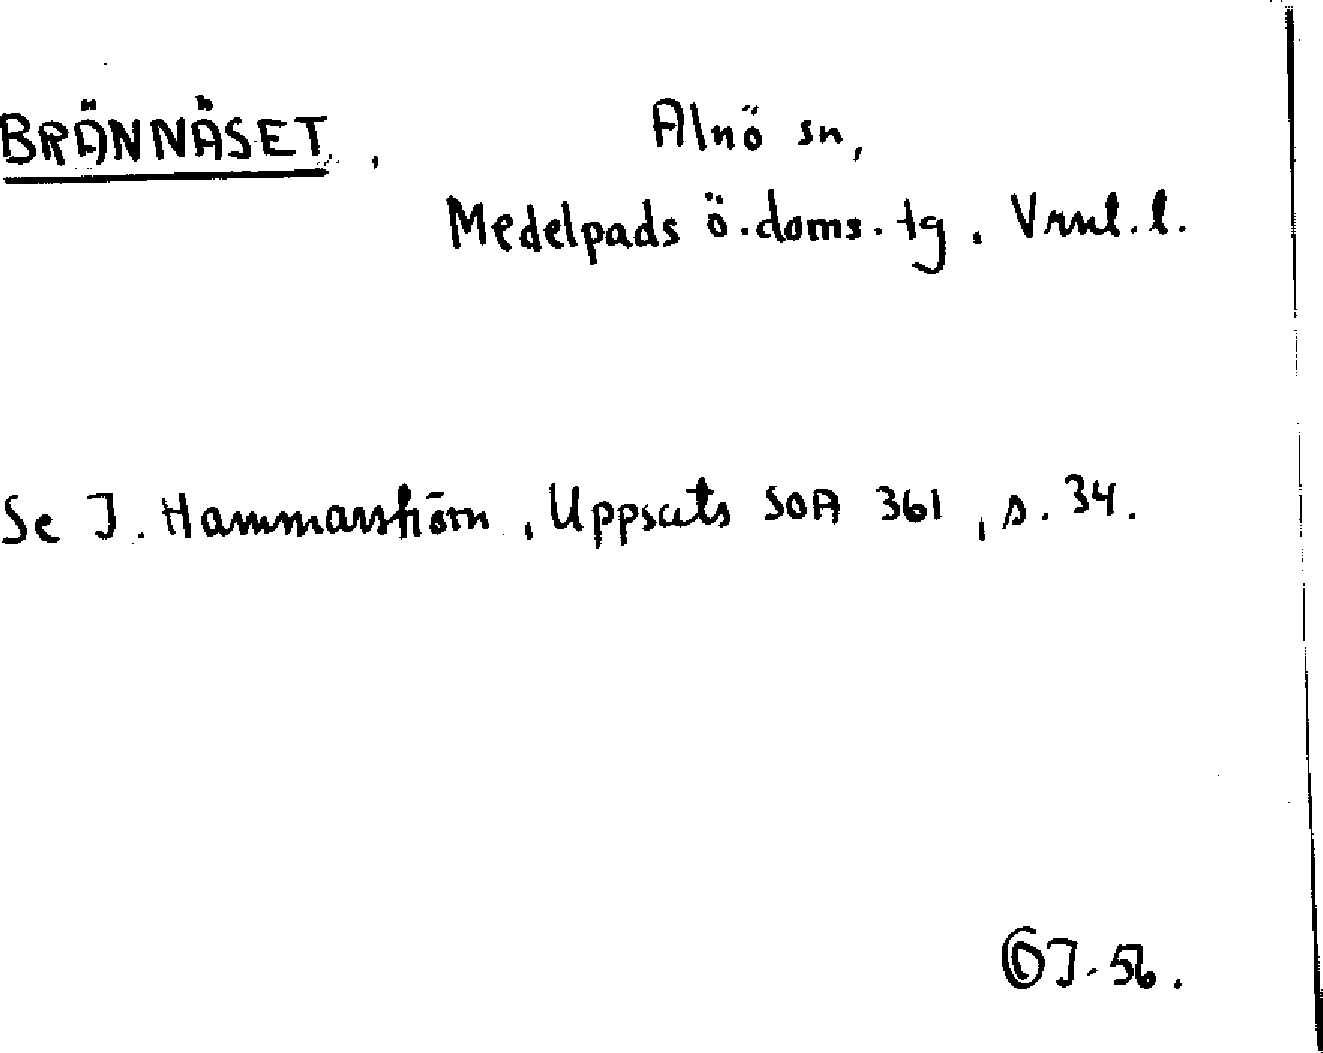 BRÄNNÄSET, Alnö sn,
Medelpads ö.doms.tg. Vrnl.l.
Se I. Hammarström, Uppsats SOA 361, s. 34.
I-56.